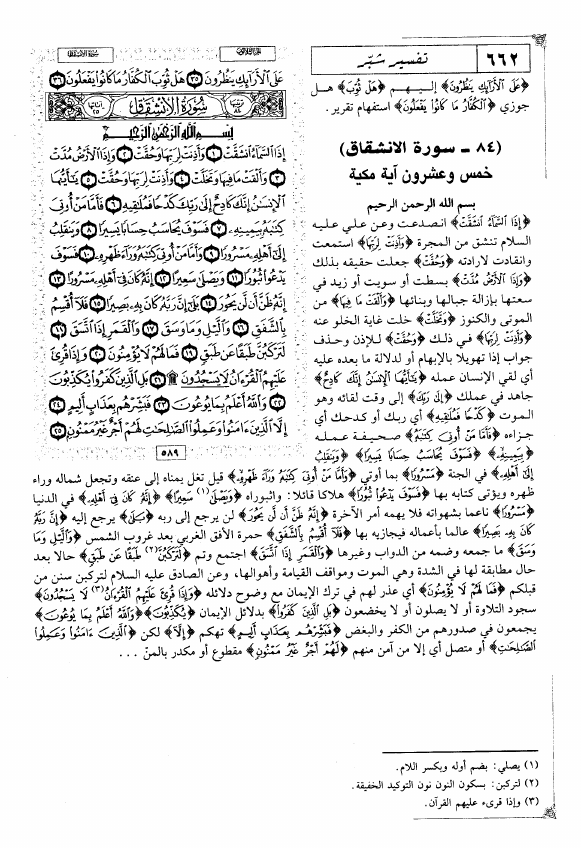 ٦٦٢
تفسير شبّر
﴿عَلَى الْأَرَائِكِ يَنْظُرُونَ﴾ إليهم ﴿هَلْ ثُوِّبَ﴾ هل
جوزي ﴿الْكُفَّارُ مَا كَانُوا يَفْعَلُونَ﴾ استفهام تقرير.
(٨٤ - سورة الانشقاق)
خمس وعشرون آية مكية
بسم الله الرحمن الرحيم
﴿إِذَا السَّمَاءُ انْشَقَّتْ﴾ انصدعت وعن علي عليه
السلام تنشق من المجرة ﴿وَأَذِنَتْ لِرَبِّهَا﴾ استمعت
وانقادت لارادته ﴿وَحُقَّتْ﴾ جعلت حقيقه بذلك
﴿وَإِذَا الْأَرْضُ مُدَّتْ﴾ بسطت أو سويت أو زيد في
سعتها بإزالة جبالها وبنائها ﴿وَأَلْقَتْ مَا فِيهَا﴾ من
الموتى والكنوز ﴿وَتَخَلَّتْ﴾ خلت غاية الخلو عنه
﴿وَأَذِنَتْ لِرَبِّهَا﴾ في ذلك ﴿وَحُقَّتْ﴾ للإذن وحذف
جواب إذا تهويلا بالإبهام أو لدلالة ما بعده عليه
أي لقي الإنسان عمله ﴿يَا أَيُّهَا الْإِنْسَانُ إِنَّكَ كَادِحٌ﴾
جاهد في عملك ﴿إِلَى رَبِّكَ﴾ إلى وقت لقائه وهو
الموت ﴿كَدْحًا فَمُلَاقِيهِ﴾ أي ربك أو كدحك أي
جزاءه ﴿فَأَمَّا مَنْ أُوتِيَ كِتَابَهُ﴾ صحيفة عمله
﴿بِيَمِينِهِ﴾ ﴿فَسَوْفَ يُحَاسَبُ حِسَابًا يَسِيرًا﴾ ﴿وَيَنْقَلِبُ
سورة الانشقاق
الجزء الثلاثون
عَلَى الْأَرَائِكِ يَنْظُرُونَ ٣٥ هَلْ ثُوِّبَ الْكُفَّارُ مَا كَانُوا يَفْعَلُونَ ٣٦
سُورَةُ الانْشِقَاقِ
بِسْمِ اللَّهِ الرَّحْمَٰنِ الرَّحِيمِ
إِذَا السَّمَاءُ انْشَقَّتْ ١ وَأَذِنَتْ لِرَبِّهَا وَحُقَّتْ ٢ وَإِذَا الْأَرْضُ مُدَّتْ
٣ وَأَلْقَتْ مَا فِيهَا وَتَخَلَّتْ ٤ وَأَذِنَتْ لِرَبِّهَا وَحُقَّتْ ٥ يَا أَيُّهَا
الْإِنْسَانُ إِنَّكَ كَادِحٌ إِلَى رَبِّكَ كَدْحًا فَمُلَاقِيهِ ٦ فَأَمَّا مَنْ أُوتِيَ
كِتَابَهُ بِيَمِينِهِ ٧ فَسَوْفَ يُحَاسَبُ حِسَابًا يَسِيرًا ٨ وَيَنْقَلِبُ
إِلَى أَهْلِهِ مَسْرُورًا ٩ وَأَمَّا مَنْ أُوتِيَ كِتَابَهُ وَرَاءَ ظَهْرِهِ ١٠ فَسَوْفَ
يَدْعُوا ثُبُورًا ١١ وَيَصْلَى سَعِيرًا ١٢ إِنَّهُ كَانَ فِي أَهْلِهِ مَسْرُورًا ١٣
إِنَّهُ ظَنَّ أَنْ لَنْ يَحُورَ ١٤ بَلَى إِنَّ رَبَّهُ كَانَ بِهِ بَصِيرًا ١٥ فَلَا أُقْسِمُ
بِالشَّفَقِ ١٦ وَاللَّيْلِ وَمَا وَسَقَ ١٧ وَالْقَمَرِ إِذَا اتَّسَقَ ١٨
لَتَرْكَبُنَّ طَبَقًا عَنْ طَبَقٍ ١٩ فَمَا لَهُمْ لَا يُؤْمِنُونَ ٢٠ وَإِذَا قُرِئَ
عَلَيْهِمُ الْقُرْآنُ لَا يَسْجُدُونَ ۩ ٢١ بَلِ الَّذِينَ كَفَرُوا يُكَذِّبُونَ
٢٢ وَاللَّهُ أَعْلَمُ بِمَا يُوعُونَ ٢٣ فَبَشِّرْهُمْ بِعَذَابٍ أَلِيمٍ ٢٤
إِلَّا الَّذِينَ آمَنُوا وَعَمِلُوا الصَّالِحَاتِ لَهُمْ أَجْرٌ غَيْرُ مَمْنُونٍ ٢٥
٥٨٩
إِلَى أَهْلِهِ﴾ في الجنة ﴿مَسْرُورًا﴾ بما أوتي ﴿وَأَمَّا مَنْ أُوتِيَ كِتَابَهُ وَرَاءَ ظَهْرِهِ﴾ قيل تغل يمناه إلى عنقه وتجعل شماله وراء
ظهره ويؤتى كتابه بها ﴿فَسَوْفَ يَدْعُوا ثُبُورًا﴾ هلاكا قائلا: واثبوراه ﴿وَيَصْلَى(١) سَعِيرًا﴾ ﴿إِنَّهُ كَانَ فِي أَهْلِهِ﴾ في الدنيا
﴿مَسْرُورًا﴾ ناعما بشهواته فلا يهمه أمر الآخرة ﴿إِنَّهُ ظَنَّ أَنْ لَنْ يَحُورَ﴾ لن يرجع إلى ربه ﴿بَلَى﴾ يرجع إليه ﴿إِنَّ رَبَّهُ
كَانَ بِهِ بَصِيرًا﴾ عالما بأعماله فيجازيه بها ﴿فَلَا أُقْسِمُ بِالشَّفَقِ﴾ حمرة الأفق الغربي بعد غروب الشمس ﴿وَاللَّيْلِ وَمَا
وَسَقَ﴾ ما جمعه وضمه من الدواب وغيرها ﴿وَالْقَمَرِ إِذَا اتَّسَقَ﴾ اجتمع وتم ﴿لَتَرْكَبُنَّ(٢) طَبَقًا عَنْ طَبَقٍ﴾ حالا بعد
حال مطابقة لها في الشدة وهي الموت ومواقف القيامة وأهوالها، وعن الصادق عليه السلام لتركبن سنن من
قبلكم ﴿فَمَا لَهُمْ لَا يُؤْمِنُونَ﴾ أي عذر لهم في ترك الإيمان مع وضوح دلائله ﴿وَإِذَا قُرِئَ عَلَيْهِمُ الْقُرْآنُ(٣) لَا يَسْجُدُونَ﴾
سجود التلاوة أو لا يصلون أو لا يخضعون ﴿بَلِ الَّذِينَ كَفَرُوا﴾ بدلائل الإيمان ﴿يُكَذِّبُونَ﴾ ﴿وَاللَّهُ أَعْلَمُ بِمَا يُوعُونَ﴾
يجمعون في صدورهم من الكفر والبغض ﴿فَبَشِّرْهُمْ بِعَذَابٍ أَلِيمٍ﴾ تهكم ﴿إِلَّا﴾ لكن ﴿الَّذِينَ آمَنُوا وَعَمِلُوا
الصَّالِحَاتِ﴾ أو متصل أي إلا من آمن منهم ﴿لَهُمْ أَجْرٌ غَيْرُ مَمْنُونٍ﴾ مقطوع أو مكدر بالمنّ ...
(١) يصلي: بضم أوله ويكسر اللام.
(٢) لتركبن: بسكون النون نون التوكيد الخفيفة.
(٣) وإذا قرىء عليهم القرآن.